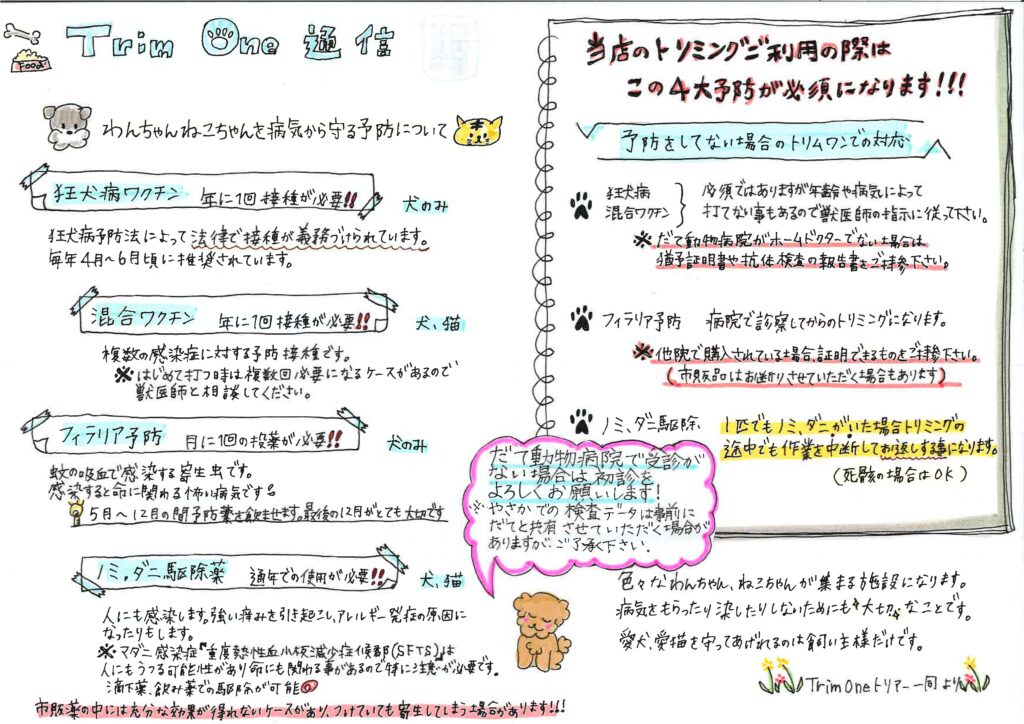 Trim One 通信
FOOD
わんちゃんねこちゃんを病気から守る予防について
狂犬病ワクチン 年に1回接種が必要!! 犬のみ
狂犬病予防法によって法律で接種が義務づけられています。
毎年4月〜6月頃に推奨されています。
混合ワクチン 年に1回接種が必要!! 犬、猫
複数の感染症に対する予防接種です。
※はじめて打つ時は複数回必要になるケースがあるので
獣医師と相談してください。
フィラリア予防 月に1回の投薬が必要!! 犬のみ
蚊の吸血で感染する寄生虫です。
感染すると命に関わる怖い病気です
5月〜12月の間予防薬を飲ませます。最後の12月がとても大切です
ノミ、ダニ駆除薬 通年での使用が必要!! 犬、猫
人にも感染します。強い痒みを引き起こし、アレルギー発症の原因に
なったりもします。
※マダニ感染症"重度熱性血小板減少症候群(SFTS)"は
人にもうつる可能性があり命にも関わる事があるので特に注意が必要です。
滴下薬、飲み薬での駆除が可能
市販薬の中には充分な効果が得れないケースがあり、つけていても寄生してしまう場合があります!!!
当店のトリミングご利用の際は
この4大予防が必須になります!!!
予防をしてない場合のトリムワンでの対応
狂犬病
混合ワクチン
必須ではありますが年齢や病気によって
打てない事もあるので獣医師の指示に従って下さい。
※だて動物病院がホームドクターでない場合は
猶予証明書や抗体検査の報告書をご持参下さい。
フィラリア予防 病院で診察してからのトリミングになります。
※他院で購入されている場合、証明できるものをご持参下さい。
(市販品はお断りさせていただく場合もあります)
ノミ、ダニ駆除 1匹でもノミ、ダニがいた場合トリミングの
途中でも作業を中断してお返しする事になります。
(死骸の場合はOK)
だて動物病院で受診が
ない場合は初診を
よろしくお願いします!
※やさかでの検査データは事前に
だてと共有させていただく場合が
ありますが、ご了承下さい。
色々なわんちゃん、ねこちゃんが集まる施設になります。
病気をもらったり染したりしないためにも大切なことです。
愛犬、愛猫を守ってあげれるのは飼い主様だけです。
Trim Oneトリマー一同より